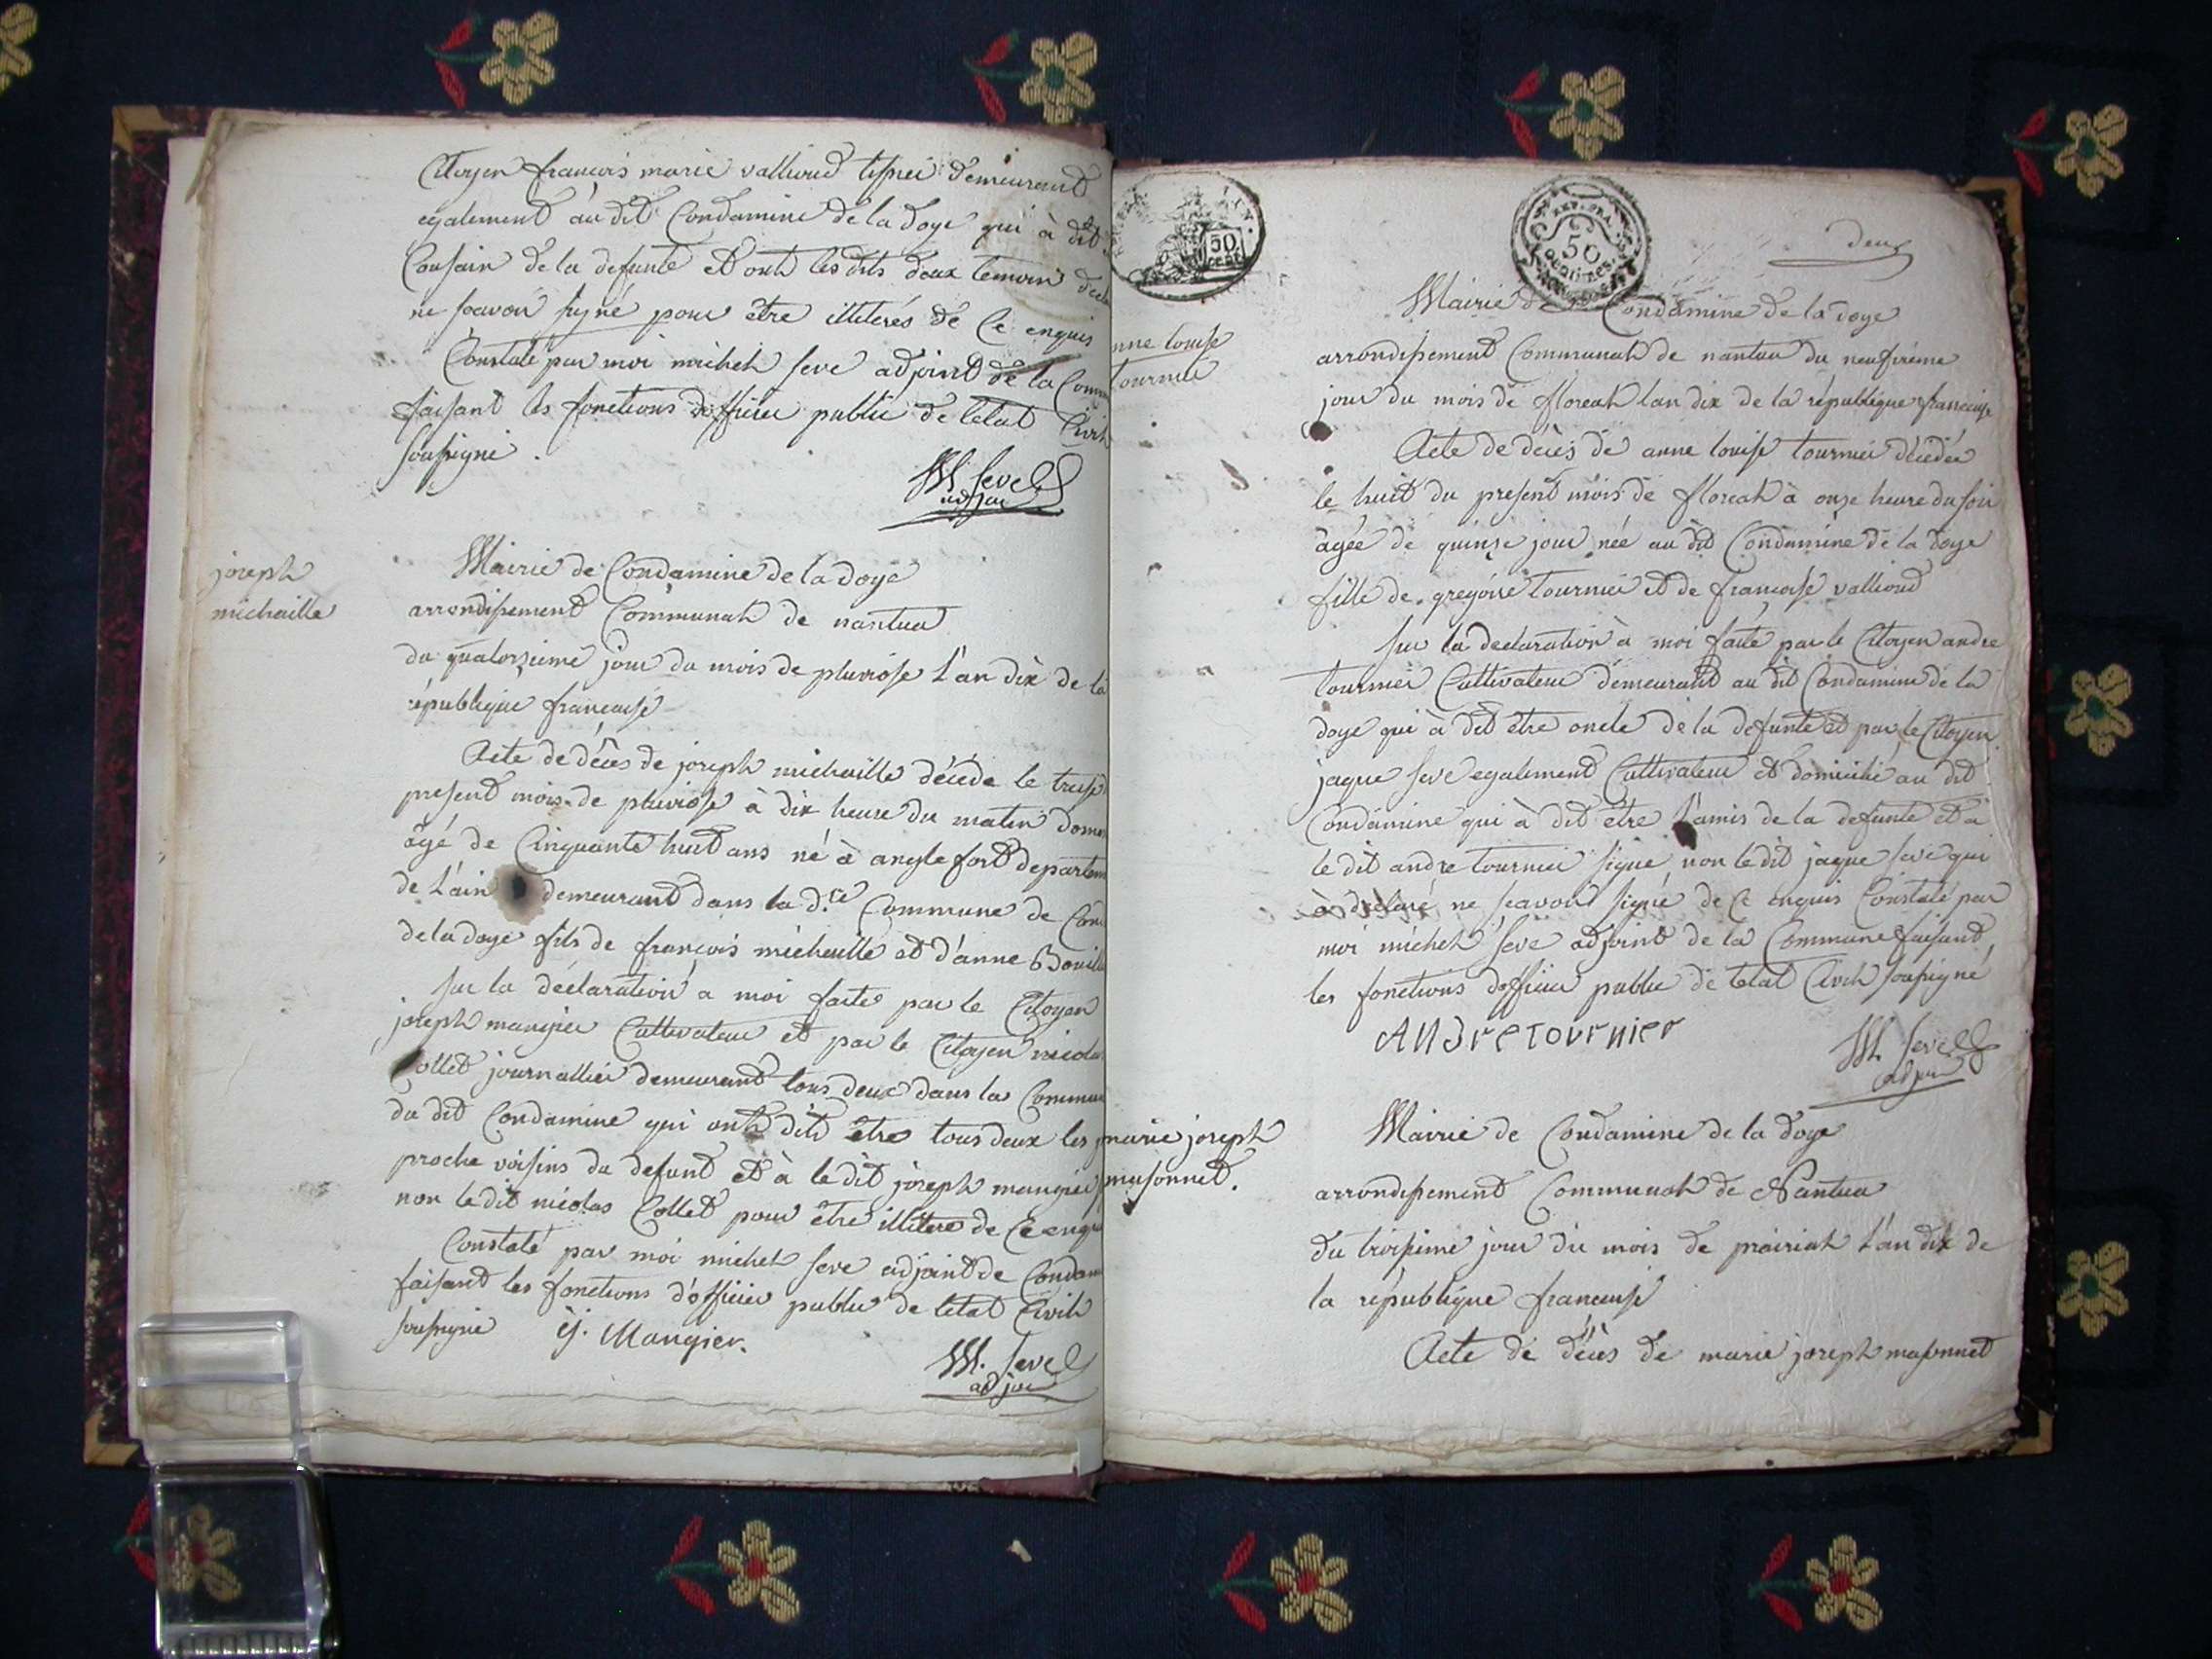 Citoyen françois marie vallioud tisseï demeurant
egalement au dit Condamine de la doye qui à dit
Cousain de la defunte et onh les dits deux temoin
ne scavoir signé pour être illiterés de Ce enquis
Constaté par moi michel seve adjoint de la Comm
faisant les fonctions dofficier public de letat Civih
soussigné.
M. Seve
adjoint
joseph
michaille
Mairie de Condamine de la doye
arrondissement Communah de nantua
du quatorzieme jour du mois de pluviose l'an dix de la
république francaise
Acte de décès de joseph michaille décéde le treise
present mois de pluviose à dix heure du matin
âgé de Cinquante huit ans né à anglefort departem
de L'ain demeurant dans la d.te Commune de Con
de la doye fils de françois michaille et d'anne
sur la déclaration à moi faite par le Citoyen
joseph mangier Cultivateur et par le Citoyen nicola
Collet journallier demeurant tous deux dans la Commun
du dit Condamine qui onh dits être tous deux les
proche voisins du defunt et à le dit joseph mangier
non le dit nicolas Collet pour être illitere de Ce enqu
Constaté par moi michel seve adjoint de Condam
faisant les fonctions d'officier public de letat Civih
soussigné
j. Mangier.
M. Seve
adjoint
50
cent
REP. FRA.
50
centimes
deux
nne louise
tournier
Mairie de Condamine de la doye
arrondissement Communah de nantua du neufvieme
jour du mois de floreah lan dix de la république francaise
Acte de décès de anne louise tournier décédée
le huit du present mois de floreah à onze heure du soir
agée de quinze jour née au dit Condamine de la doye
fille de gregoire tournier et de francoise vallioud
sur la declaration à moi faite par le Citoyen andre
tournier Cultivateur demeurant au dit Condamine de la
doye qui à dit être oncle de la defunte et par le Citoyen
jaque seve egalement Cultivateur et domicilié au dit
Condamine qui à dit être L'amis de la defunte et à
le dit andre tournier signé, non le dit jaque seve qui
à déclaré ne scavoir signé de Ce enquis Constaté par
moi michel seve adjoint de la Commune faisant
les fonctions dofficier public de letat Civih soussigné
ANdre TOURNIER
M. Seve
adjoint
marie joseph
massonnet.
Mairie de Condamine de la doye
arrondissement Communah de Nantua
du troisieme jour du mois de prairiah l'an dix de
la république francaise
Acte de décès de marie joseph massonnet